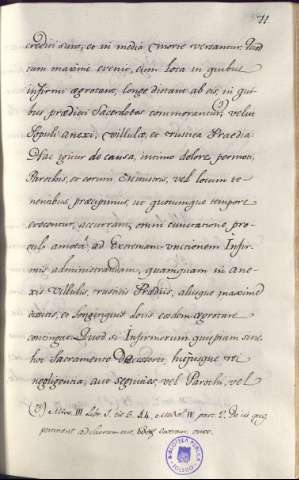 71
crediti sunt, et in medio mortis versantur. Quod
cum maxime evenit, cum loca in quibus
infirmi ægrotant, longe distant ab eis, in qui-
bus prædicti Sacerdotes commorantur, (3) velut
Populi anexi, Villulæ, et rustica Prædia.
Hac igitur de causa, intimo dolore permoti,
Parochis, et eorum Ministris, vel locum te-
nenabus, præcipimus, ut quocumque tempore
evocentur, accurrant, omni cunctatione pro-
cul amota, ad Extremam-unctionem Infir-
mis administrandam, quamquam in ane-
xis Villulis, rusticis Prædiis, aliisque maxime
dissitis, et longinquis locis eosdem ægrotare
contingat. Quod si Infirmorum quispiam sine
hoc Sacramento decesserit, hujusque rei
negligentia, aut segnities, vel Parochi, vel
III Lib. I. tit. 6. 44. IV part. 2. De iis quæ
pertinent ad
BIBLIOTECA PUBLICA
TOLEDO